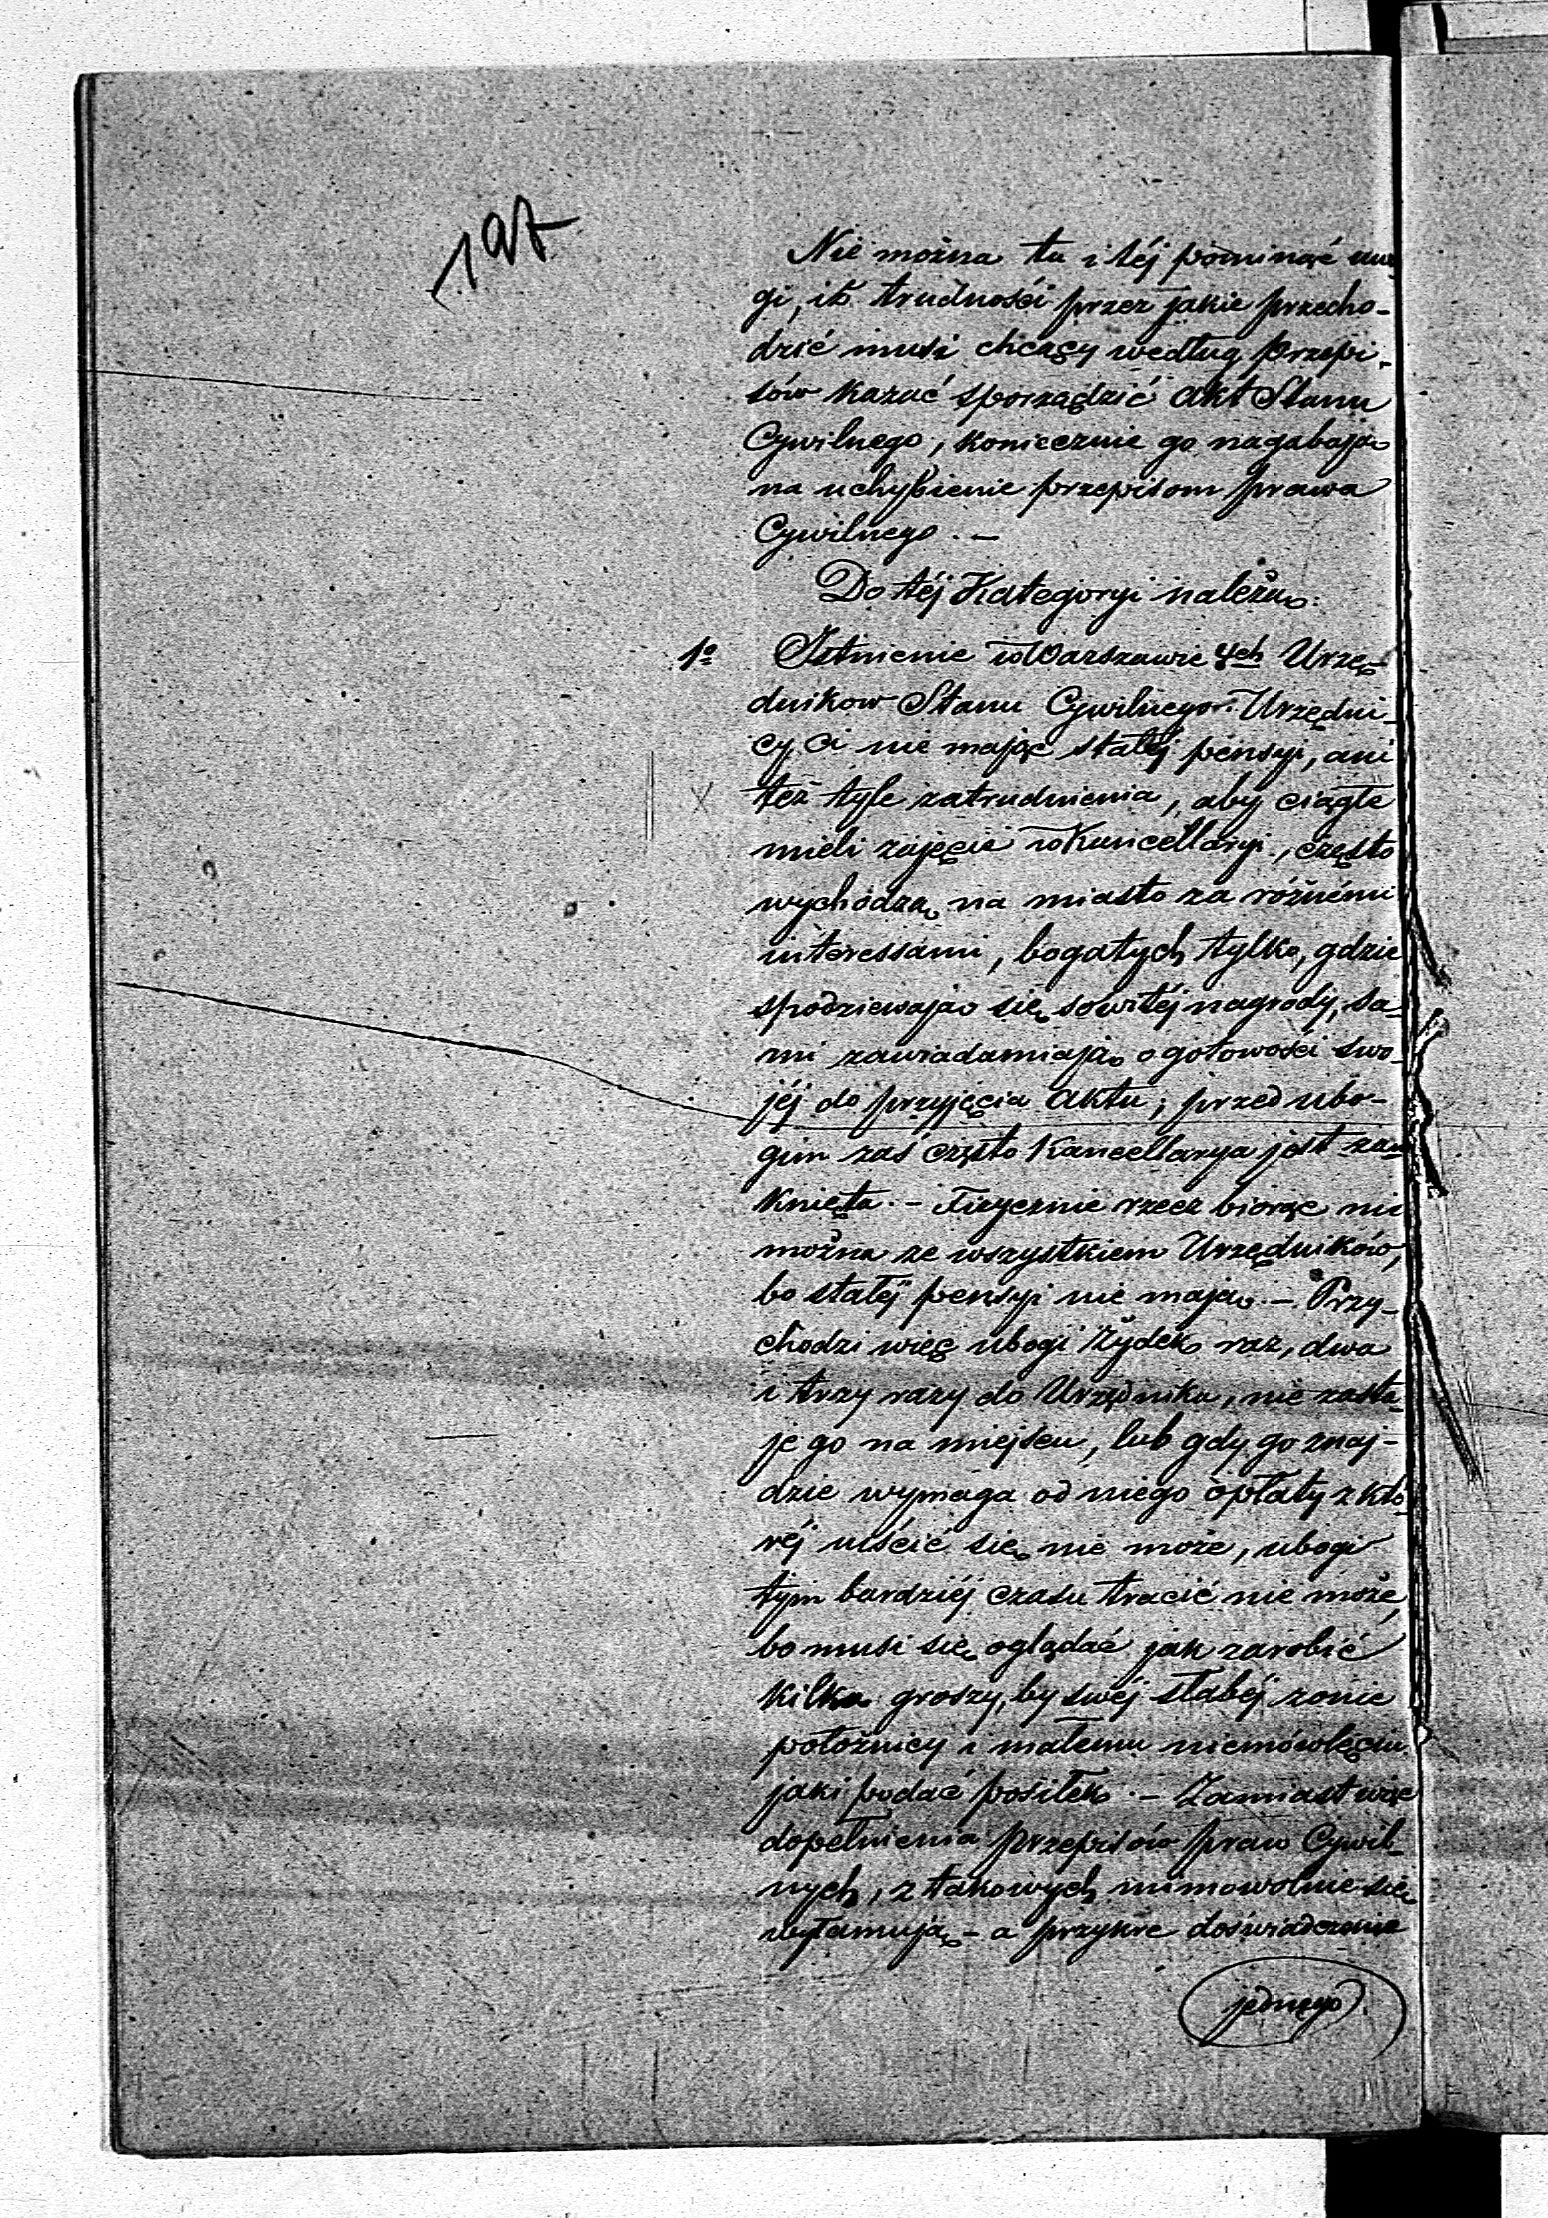 197
Nie można tu i téj pominąć uwa
gi, iż trudności przez jakie przecho-
dzić musi chcący według przepi-
sów kazać sporządzić akt Stanu
Cywilnego, koniecznie go nagabają
na uchybienie przepisom prawa
Cywilnego. –
Do téj Kategoryi należą.
1º Istnienie w Warszawie 4ch Urzę-
dnikow Stanu Cywilnego. Urzędni-
cy ci nie mając stałéj pensyi, ani
też tyle zatrudnienia, aby ciągłe
mieli zajęcie w Kancellaryi, często
wychodzą na miasto za różnémi
interessami, bogatych tylko, gdzie
spodziewają się sowitéj nagrody, sa-
mi zawiadamiają o gotowości swo-
jéj do przyjęcia aktu; przed ubo-
gim zaś często Kancellarya jest zam
knięta. – Fizycznie rzecz biorąc nie
można ze wszystkiem Urzędników,
bo stałéj pensyi nie mają. – Przy-
chodzi więc ubogi Żydek raz, dwa
i trzy razy do Urzędnika, nie zasta-
je go na miejscu, lub gdy go znaj-
dzie wymaga od niego opłaty z któ-
réj uiścić się nie może, ubogi
tym bardziéj czasu tracić nie może,
bo musi się oglądać jak zarobić
kilka groszy, by swéj słabéj zonie
położnicy i małemu niemówlęciu
jaki podać posiłek. – Zamiast więc
dopełnienia przepisów praw Cywil-
nych, z takowych mimowolnie się
wyłamują – a przykre doświadczenie
jednego